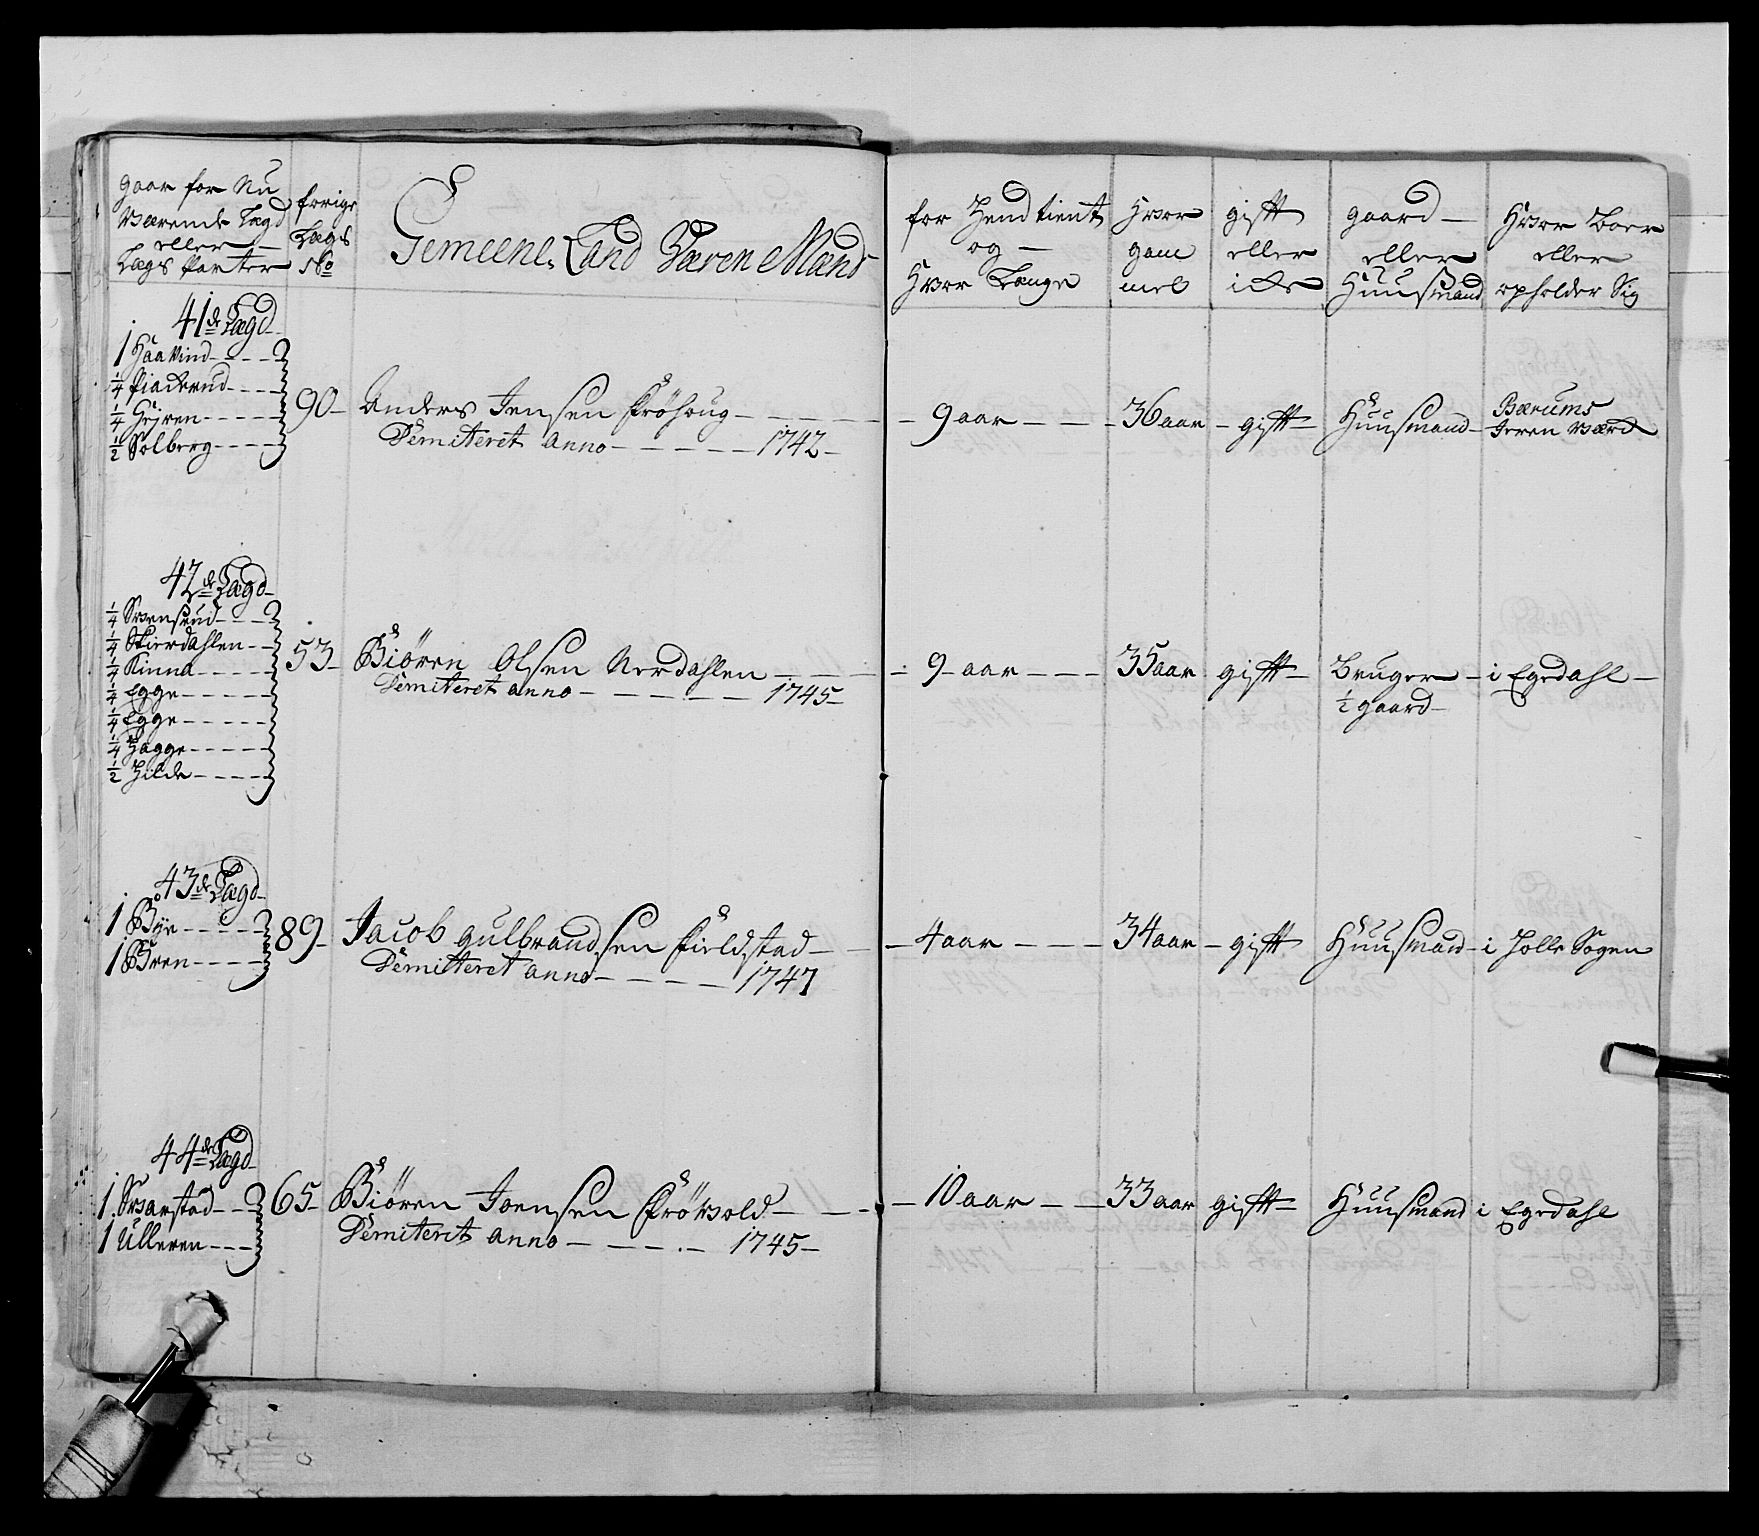 gaar for Nu
Værende Lægd
eller
Lægs Parter
forige
Lægs
No
Gemeene Land Væren Mænd
for Hend tient
og
Hvor Længe
Hvor
gam
mel
gift
eller
icke
gaard
eller
Huusmand
Hvor Boer
eller
opholder Sig
41de Lægd
1 Haavind
1/4 Piaderud
1/4 Gejren
1/2 Solberg
90 Anders Jensen Frøhoug
Demiteret anno 1742
9 aar
36 aar
gift
Huusmand
Bærums
Jeren Værck
42de Lægd
1/4 Svensrud
1/4 Skierdahlen
1/4 Kinna
1/4 Egge
1/4 Egge
1/4 Hagge
1/2 Hilde
53 Biören Olsen Nordahlen
Demiteret anno 1745
9 aar
35 aar
gift
Bruger
1/2 gaard
i Egedahl
43de Lægd
1 Bÿe
1 Bren
89 Jacob gulbrandsen Fieldstad
Demitteret anno 1747
4 aar
34 aar
gift
Huusmand
i Holle Sogen
44de Lægd
1 Svarstad
1 Ulleren
65 Biören Joensen Frövold
Demiteret anno 1745
10 aar
33 aar
gift
Huusmand
i Egedahl